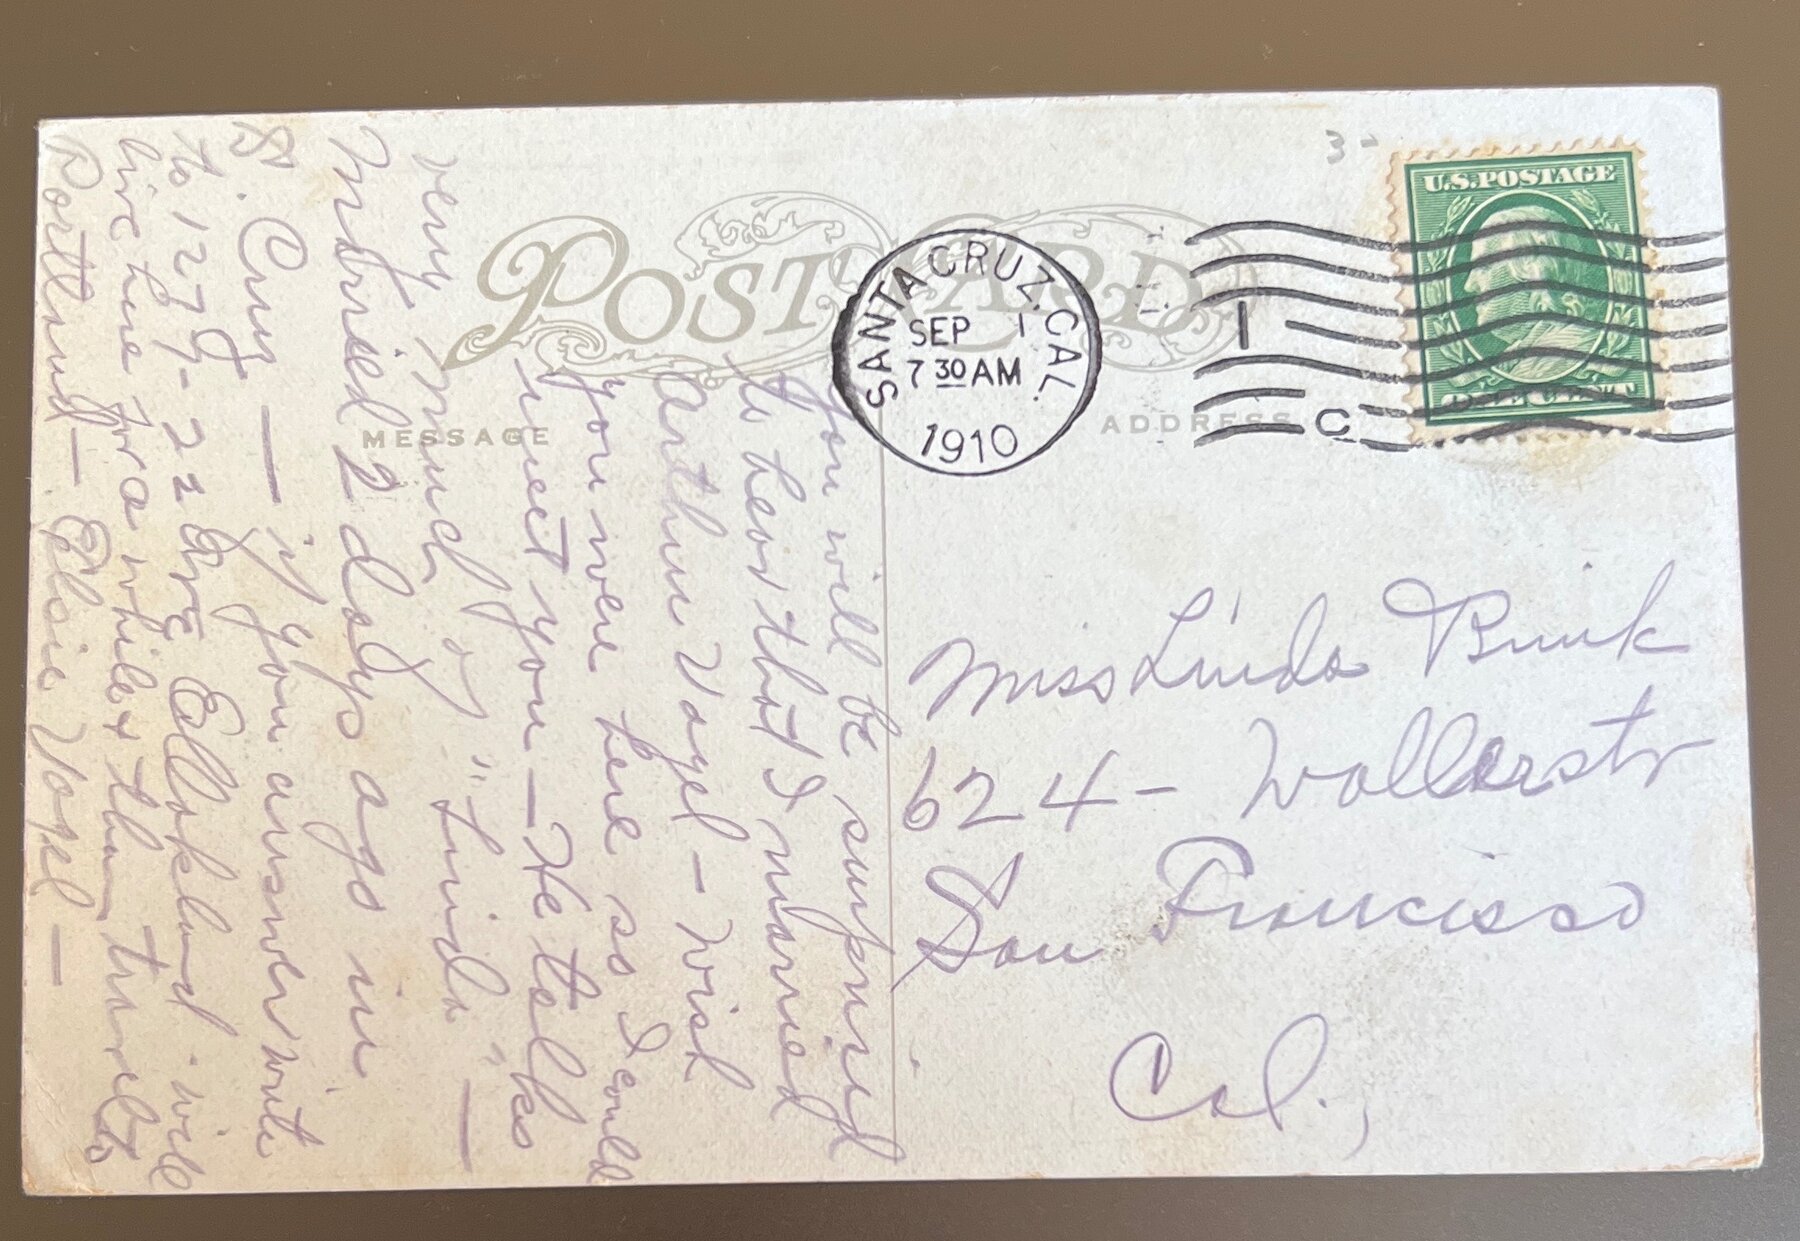 POST CARD
MESSAGE
ADDRESS
3-
U.S. POSTAGE
SANTA CRUZ, CAL.
SEP 1
7 30 AM
1910
1
C
You will be surprised
to hear that I married
Arthur Vogel - wish
you were here so I could
meet you - He talks
very much of "Linda" -
Married 2 days ago in
S. Cruz - if you answer write
to 1279 - 22 Ave E. Oakland. will
live here for a while & then travel to
Portland - Elsie Vogel -
Miss Linda
624 - Waller str
San Francisco
Cal.,